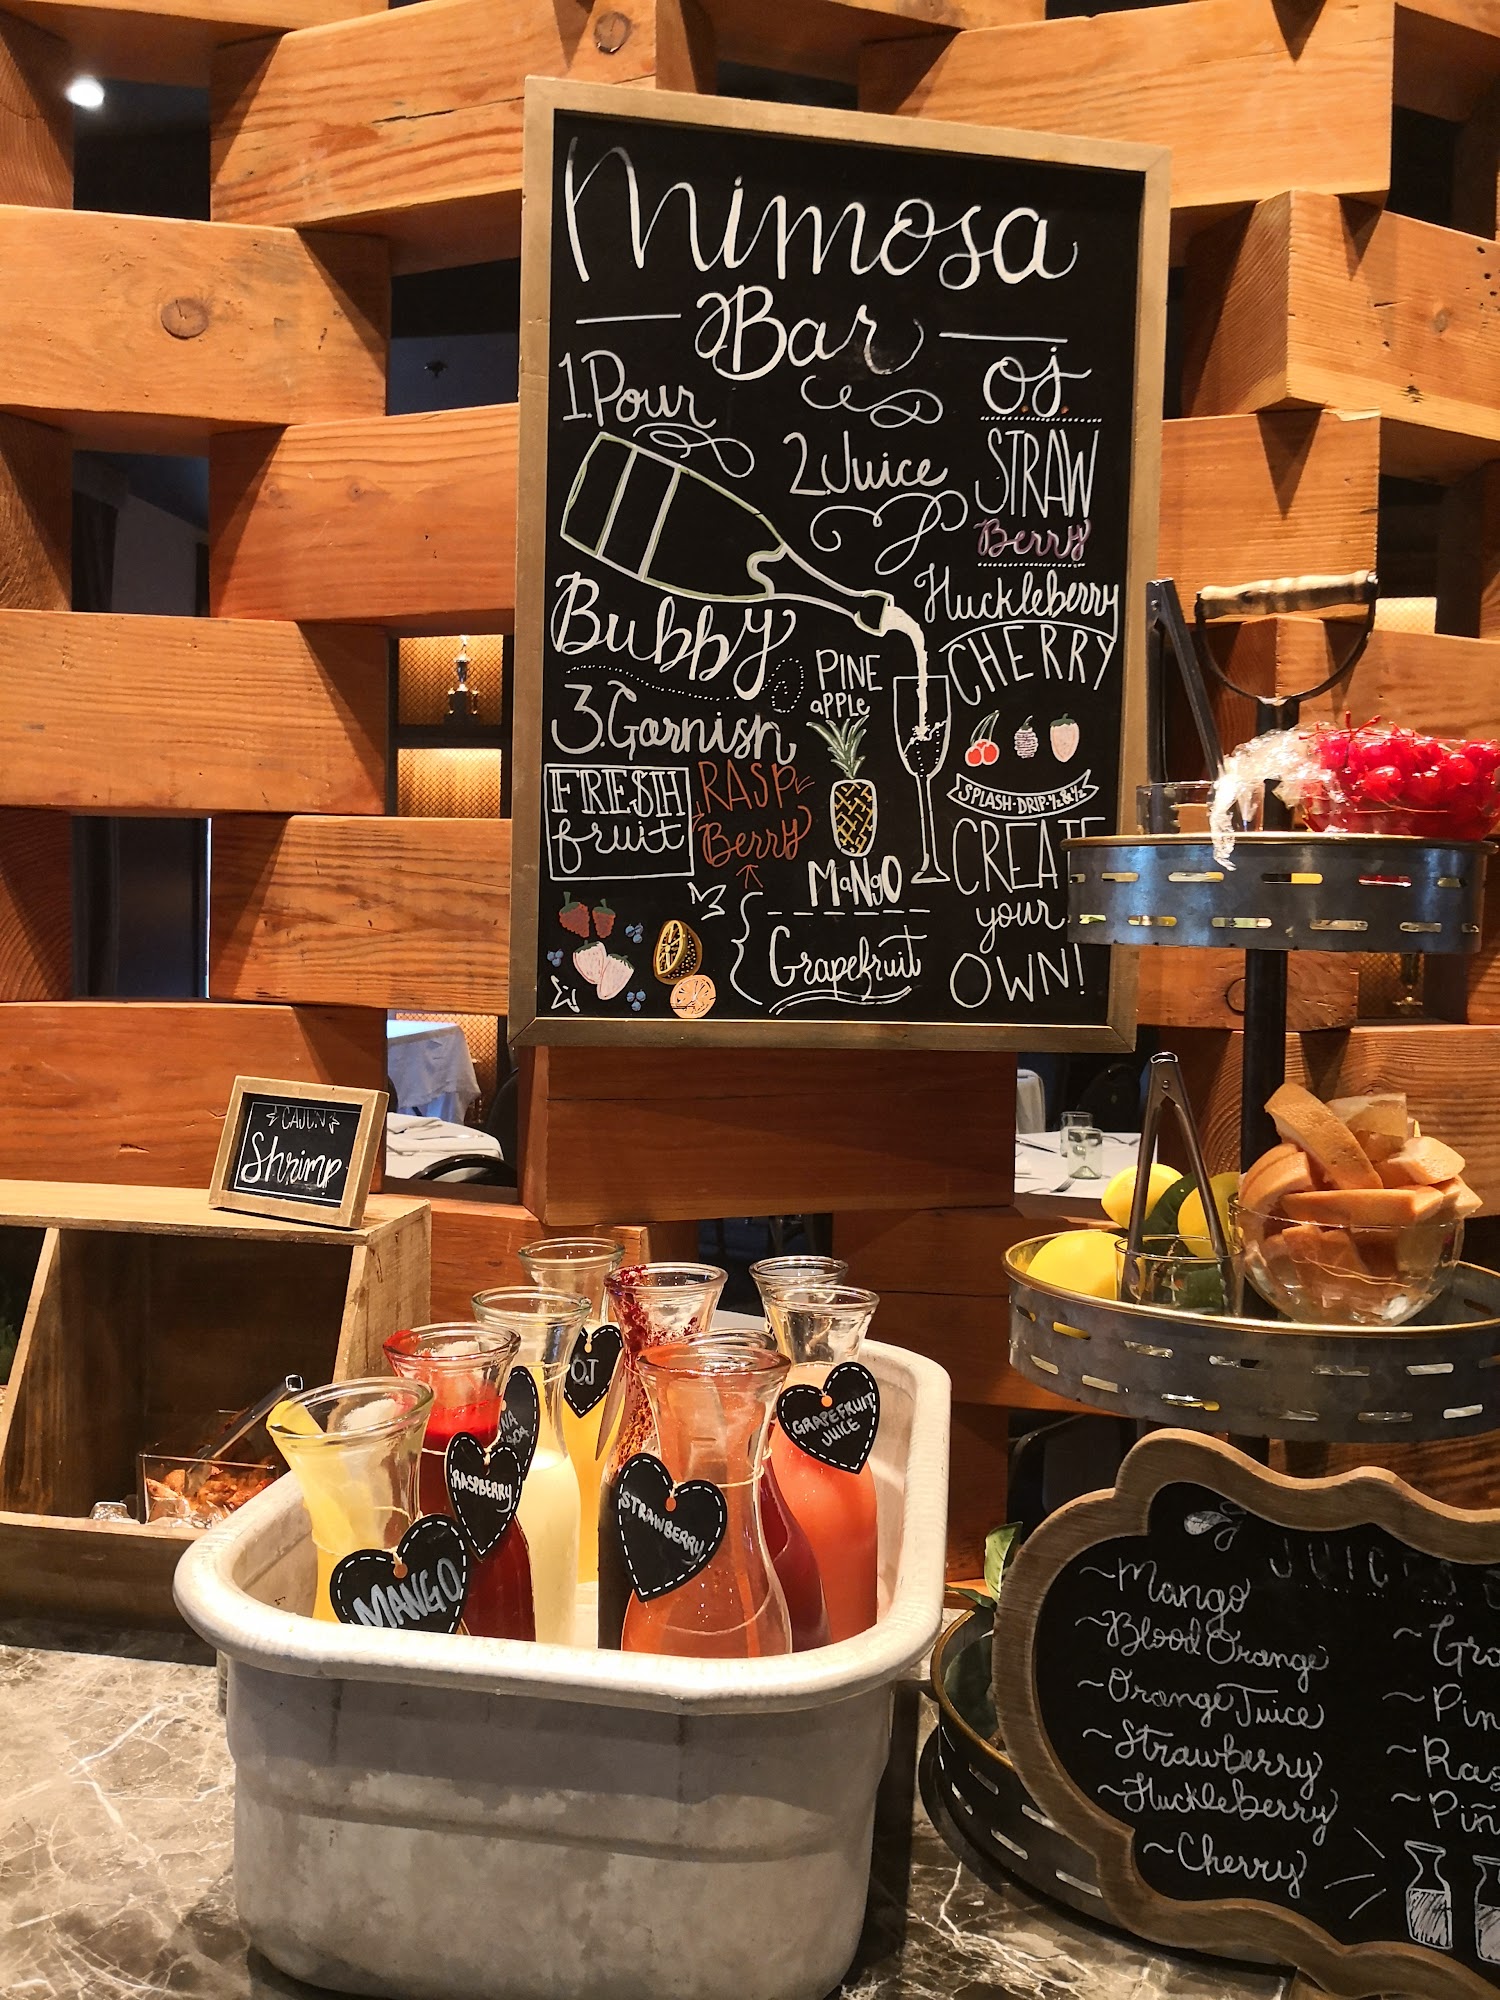 Mimosa
Bar
1. Pour
Bubby
2. Juice
O.J.
STRAW
Berry
Huckleberry
CHERRY
PINE
aPPLe
MaNgO
RASP
Berry
Grapefruit
3. Garnish
FRESH
fruit
SPLASH·DRIP·½&½
CREATE
your
OWN!
CAJUN
Shrimp
OJ
GRAPEFRUIT
JUICE
RASPBERRY
STRAWBERRY
MANGO
JUICES
~Mango
~Blood Orange
~Orange Juice
~Strawberry
~Huckleberry
~Cherry
~Gra
~Pin
~Ras
~Piñ